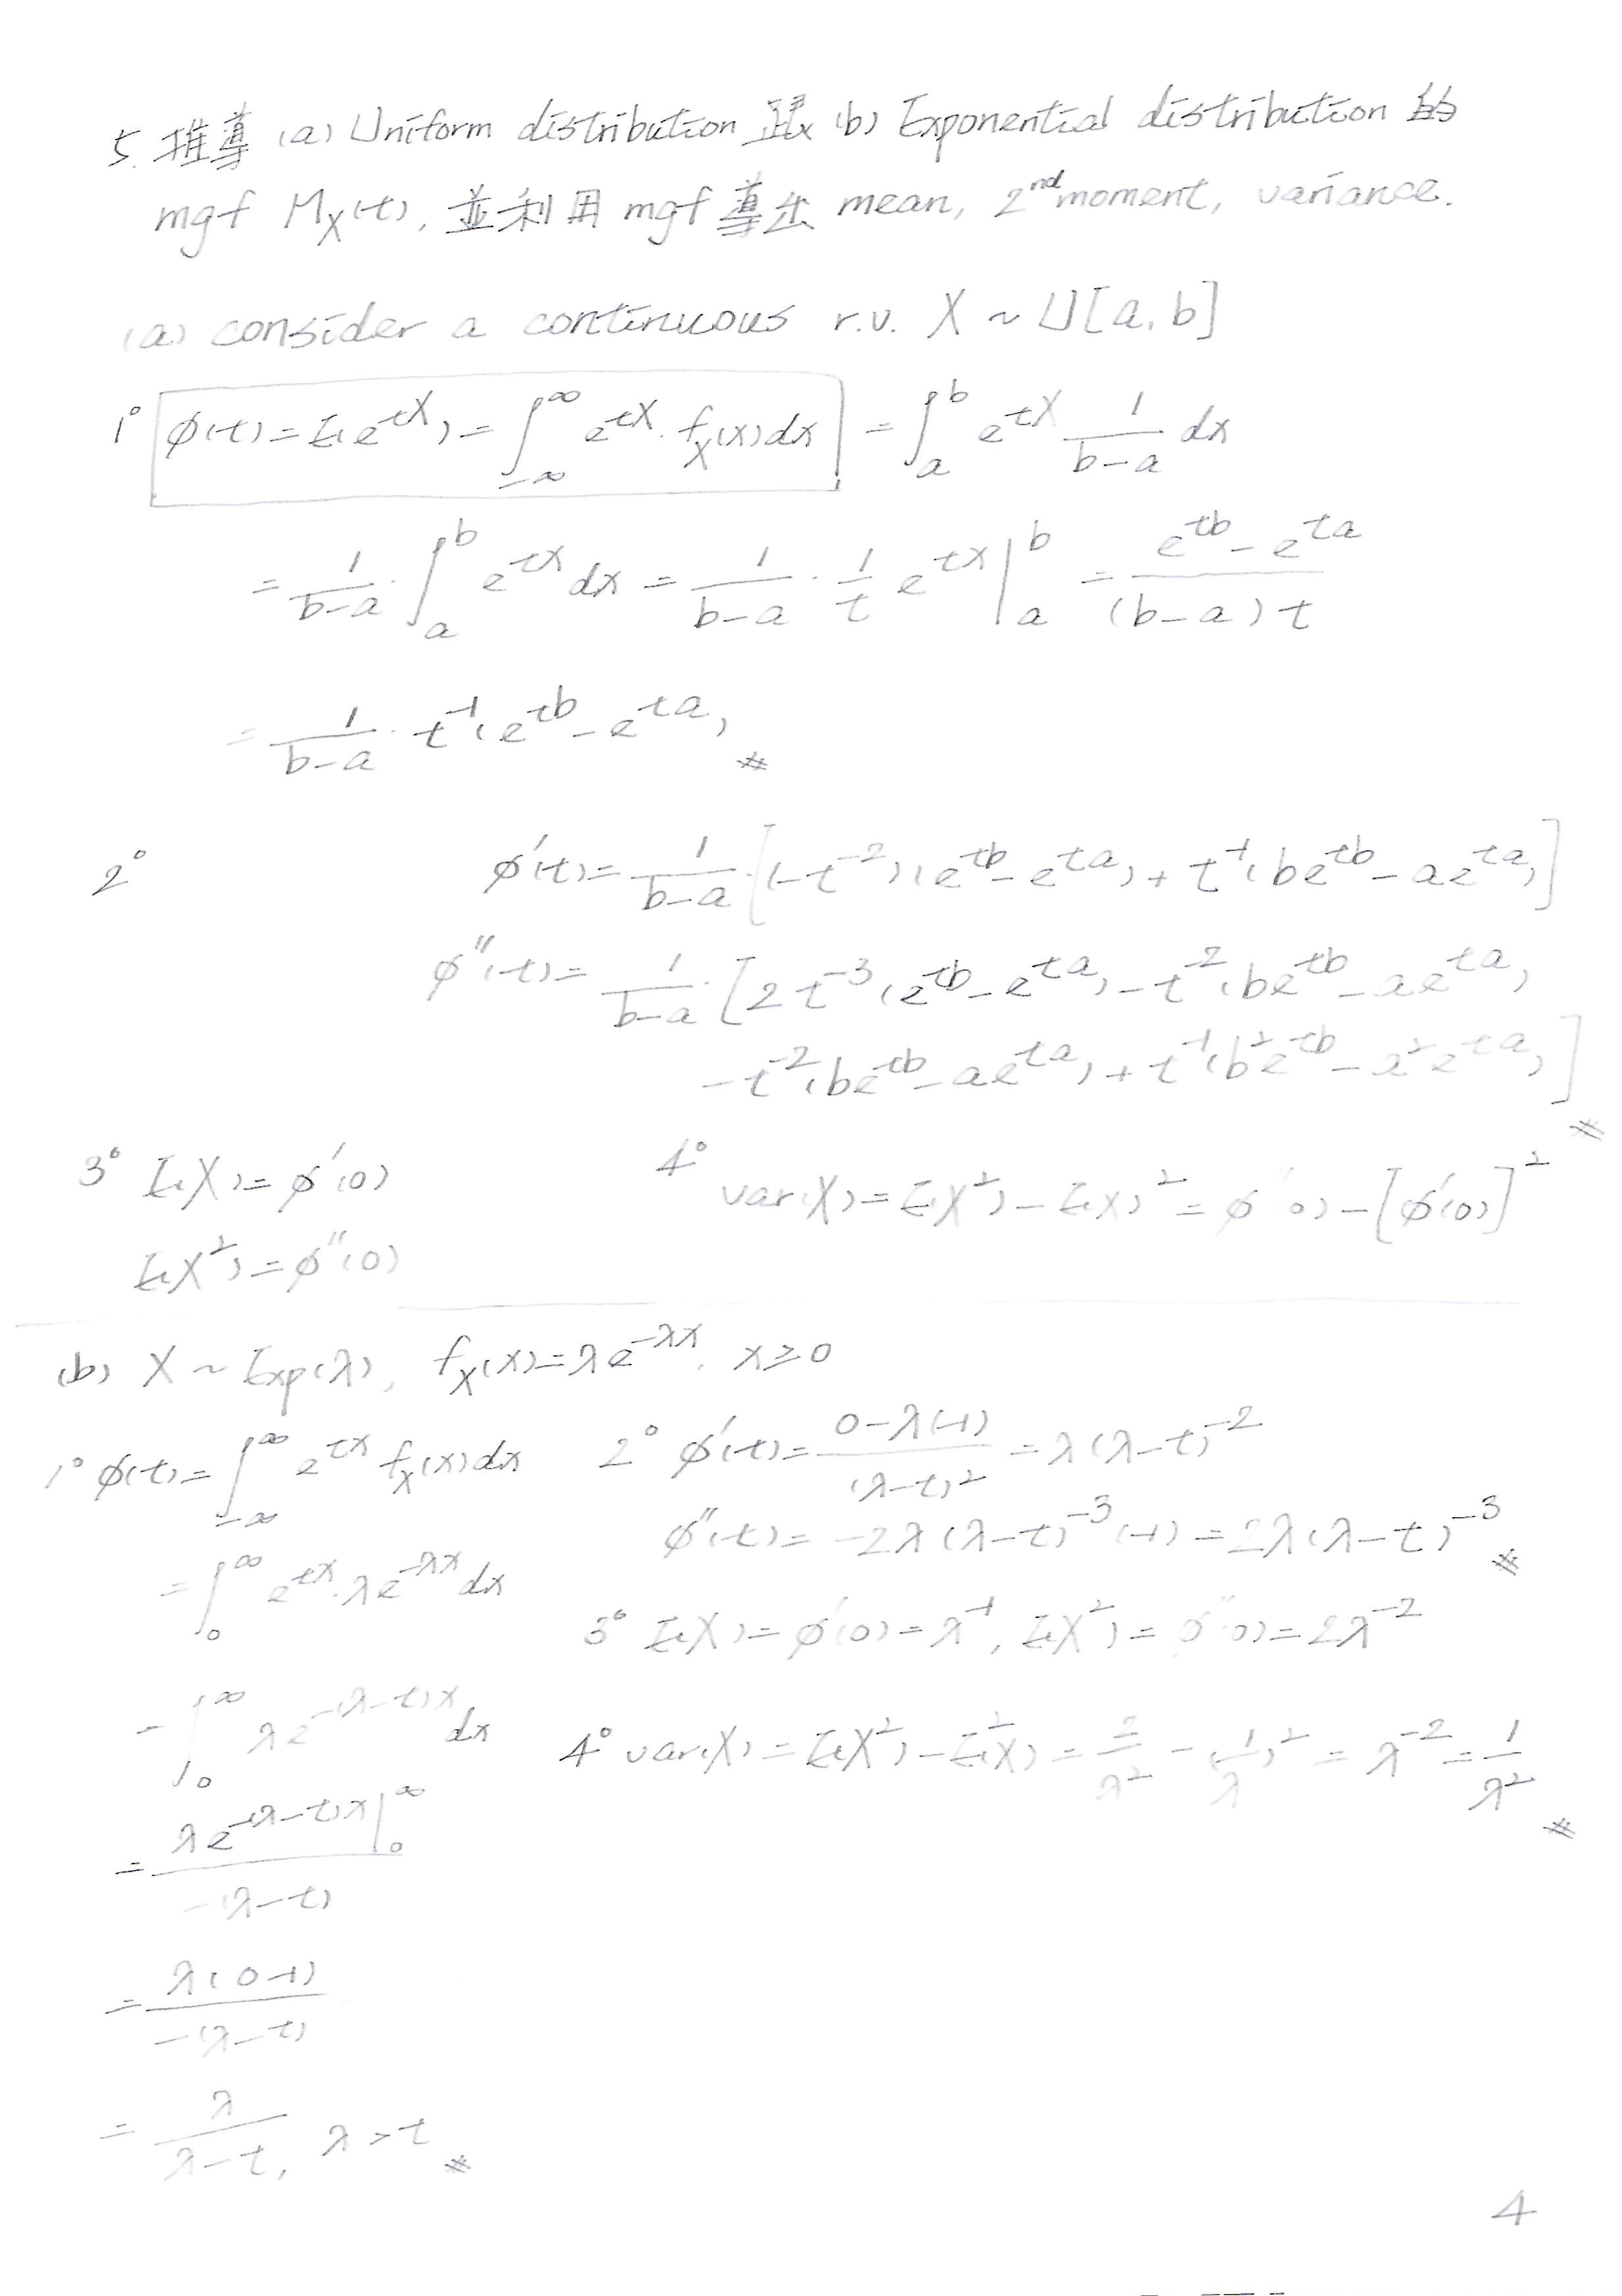 5. 推導 (a) Uniform distribution 跟 (b) Exponential distribution 的
mgf M_X(t), 並利用 mgf 導出 mean, 2nd moment, variance.
(a) consider a continuous r.v. X ~ U[a, b]
1° φ(t) = E(e^{tX}) = ∫_{-∞}^{∞} e^{tX} · f_X(x) dx = ∫_a^b e^{tX} 1/(b-a) dx
= 1/(b-a) · ∫_a^b e^{tx} dx = 1/(b-a) · 1/t e^{tx} |_a^b = (e^{tb} - e^{ta})/((b-a)t)
= 1/(b-a) · t^{-1}(e^{tb} - e^{ta}) #
2° φ'(t) = 1/(b-a) · [(-t^{-2})(e^{tb} - e^{ta}) + t^{-1}(be^{tb} - ae^{ta})]
φ''(t) = 1/(b-a) · [2t^{-3}(e^{tb} - e^{ta}) - t^{-2}(be^{tb} - ae^{ta})
- t^{-2}(be^{tb} - ae^{ta}) + t^{-1}(b²e^{tb} - a²e^{ta})] #
3° E(X) = φ'(0)
E(X²) = φ''(0)
4° var(X) = E(X²) - E(X)² = φ''(0) - [φ'(0)]²
(b) X ~ Exp(λ), f_X(x) = λe^{-λx}, x ≥ 0
1° φ(t) = ∫_{-∞}^{∞} e^{tx} f_X(x) dx
= ∫_0^∞ e^{tx} · λe^{-λx} dx
= ∫_0^∞ λe^{-(λ-t)x} dx
= λe^{-(λ-t)x} |_0^∞ / -(λ-t)
= λ(0-1) / -(λ-t)
= λ/(λ-t), λ > t #
2° φ'(t) = (0-λ(-1))/(λ-t)² = λ(λ-t)^{-2}
φ''(t) = -2λ(λ-t)^{-3}(-1) = 2λ(λ-t)^{-3} #
3° E(X) = φ'(0) = λ^{-1}, E(X²) = φ''(0) = 2λ^{-2}
4° var(X) = E(X²) - E²(X) = 2/λ² - (1/λ)² = λ^{-2} = 1/λ² #
4